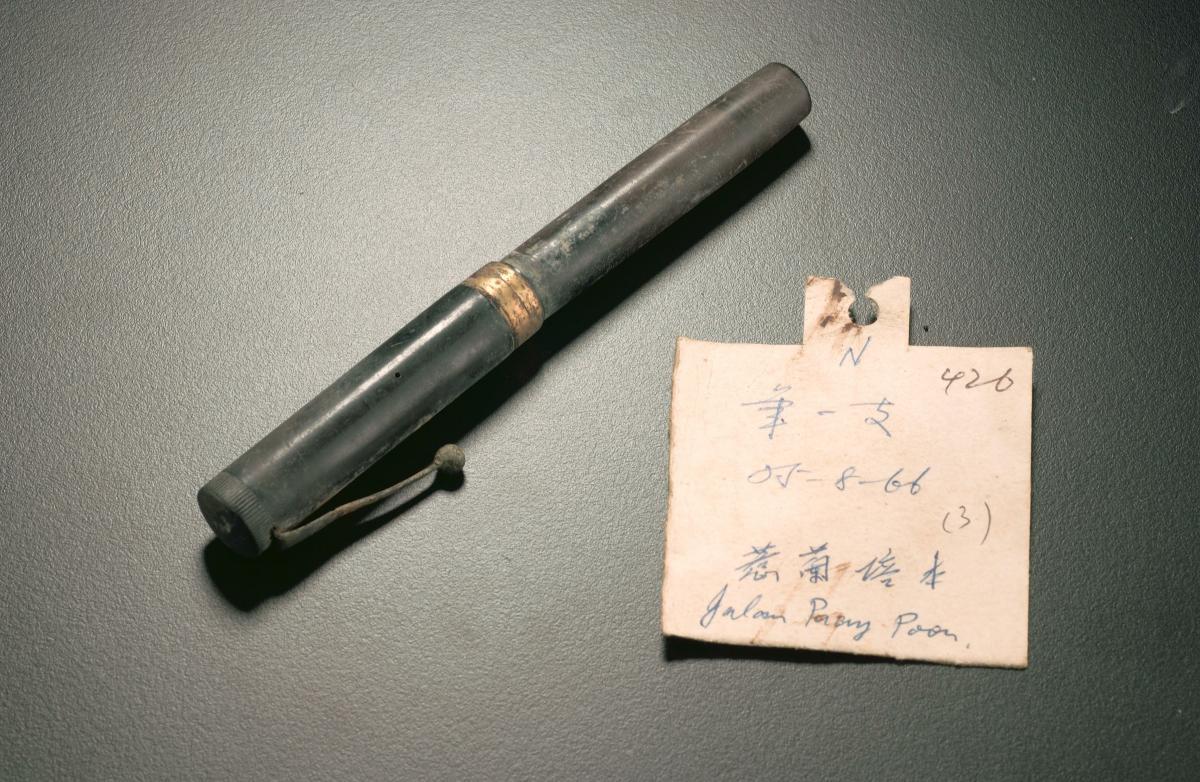 N
426
筆一支
25-8-66
(3)
惹蘭培本
Jalan Puay Poon.